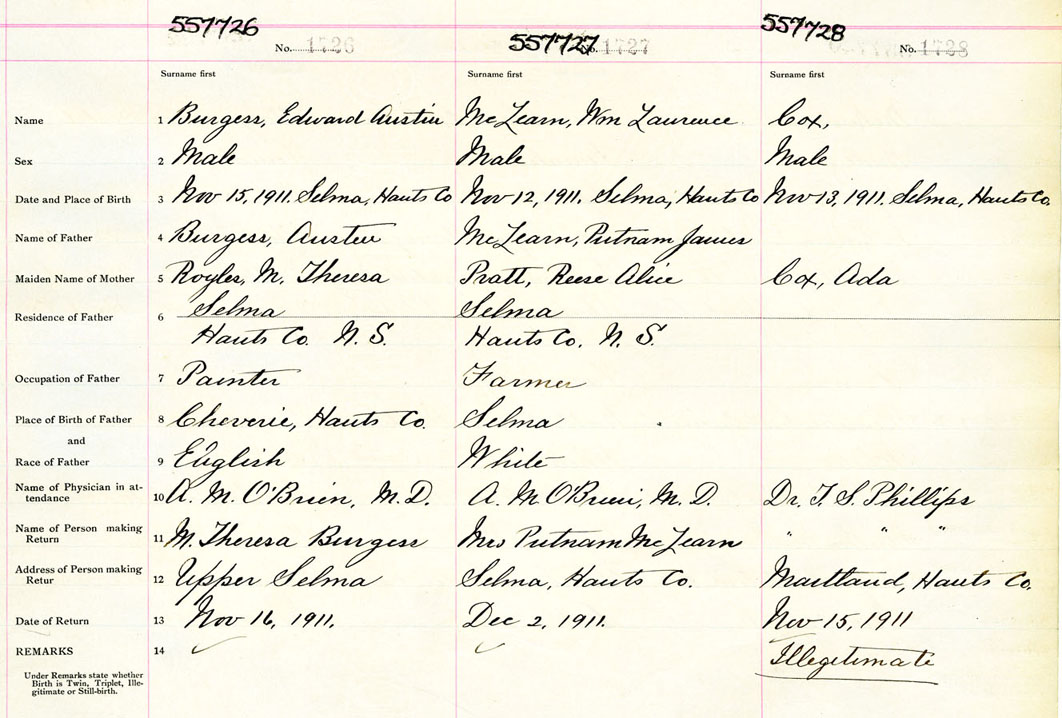 557726 557727 557728
No. 1726 No. 1727 No. 1728
Surname first Surname first Surname first
Name 1 Burgess, Edward Austin McLearn, Wm Laurence Cox,
Sex 2 Male Male Male
Date and Place of Birth 3 Nov 15, 1911. Selma, Hants Co Nov 12, 1911. Selma, Hants Co Nov 13, 1911. Selma, Hants Co.
Name of Father 4 Burgess, Austin McLearn, Putnam James
Maiden Name of Mother 5 Royles, M. Theresa Pratt, Reese Alice Cox, Ada
Residence of Father 6 Selma Selma
Hants Co. N. S. Hants Co. N. S.
Occupation of Father 7 Painter Farmer
Place of Birth of Father 8 Cheverie, Hants Co. Selma
and
Race of Father 9 English White
Name of Physician in at-
tendance 10 A. M. O'Brien, M.D. A. M O'Brien, M. D. Dr. T. S. Phillips
Name of Person making
Return 11 M. Theresa Burgess Mrs Putnam McLearn " " "
Address of Person making
Retur 12 Upper Selma Selma, Hants Co. Maitland, Hants Co.
Date of Return 13 Nov 16, 1911. Dec 2, 1911. Nov 15, 1911
REMARKS 14 Illegitimate
Under Remarks state whether
Birth is Twin, Triplet, Ille-
gitimate or Still-birth.